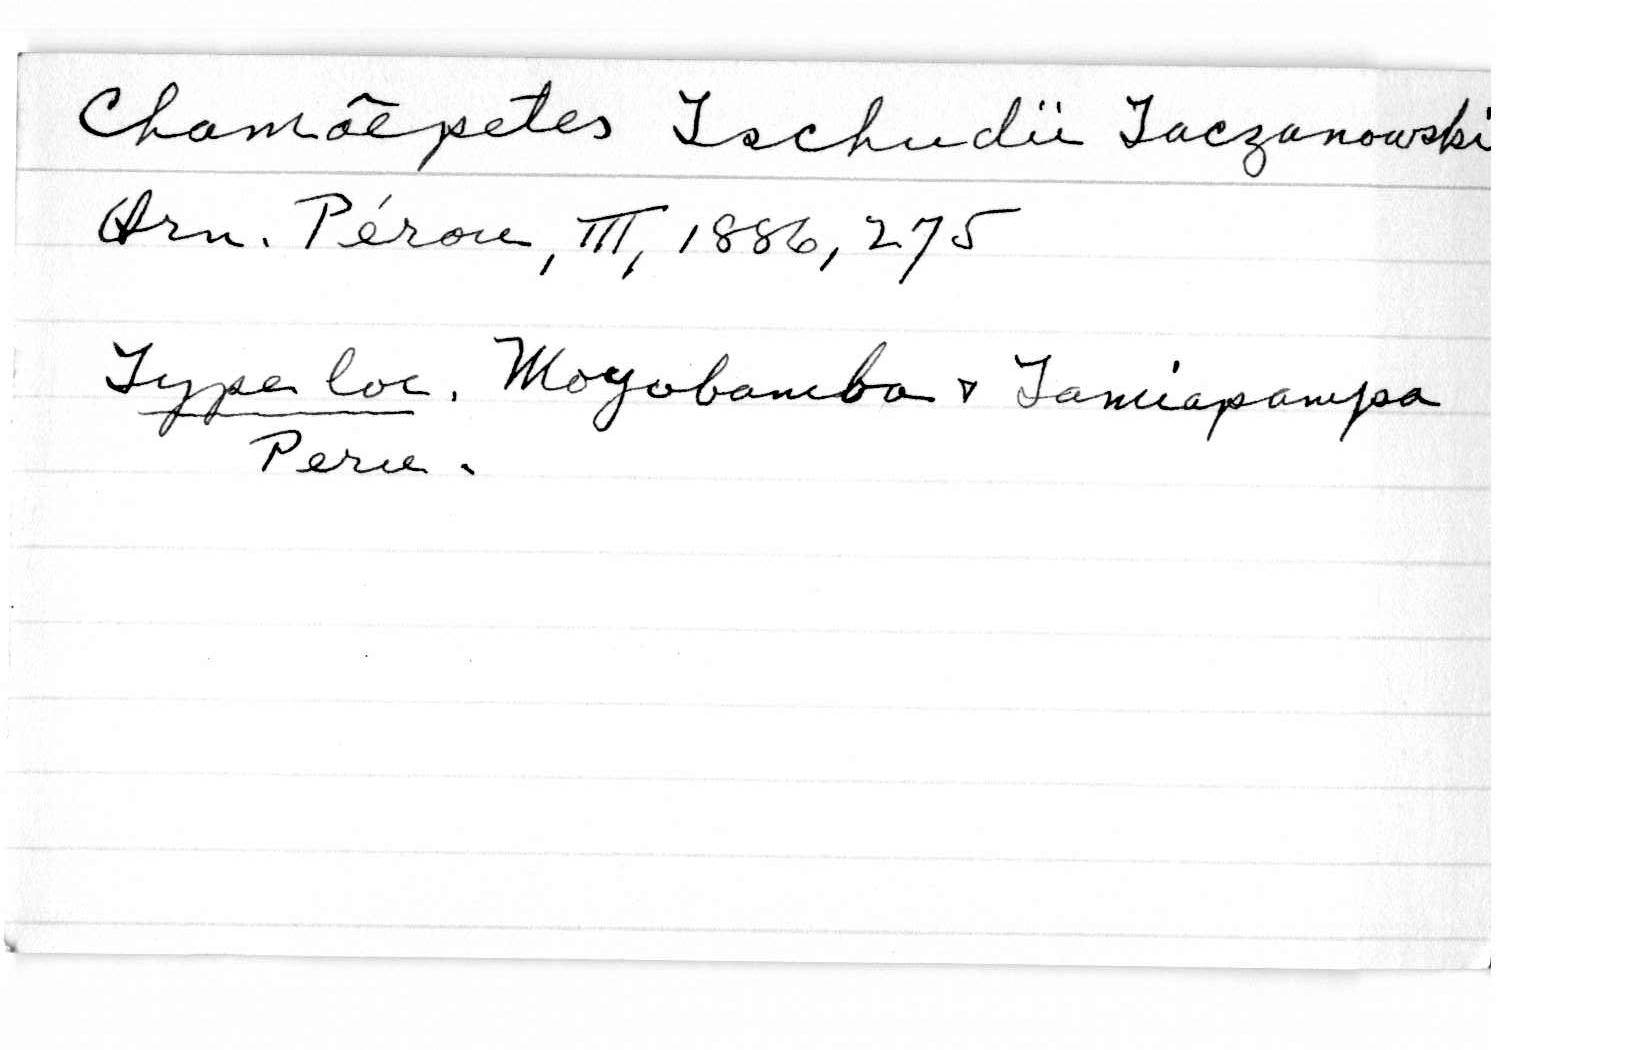 Chamaepetes Tschudii Taczanowski
Orn. Pérou, III, 1886, 275
Type loc. Moyobamba & Tamiapampa
Peru.